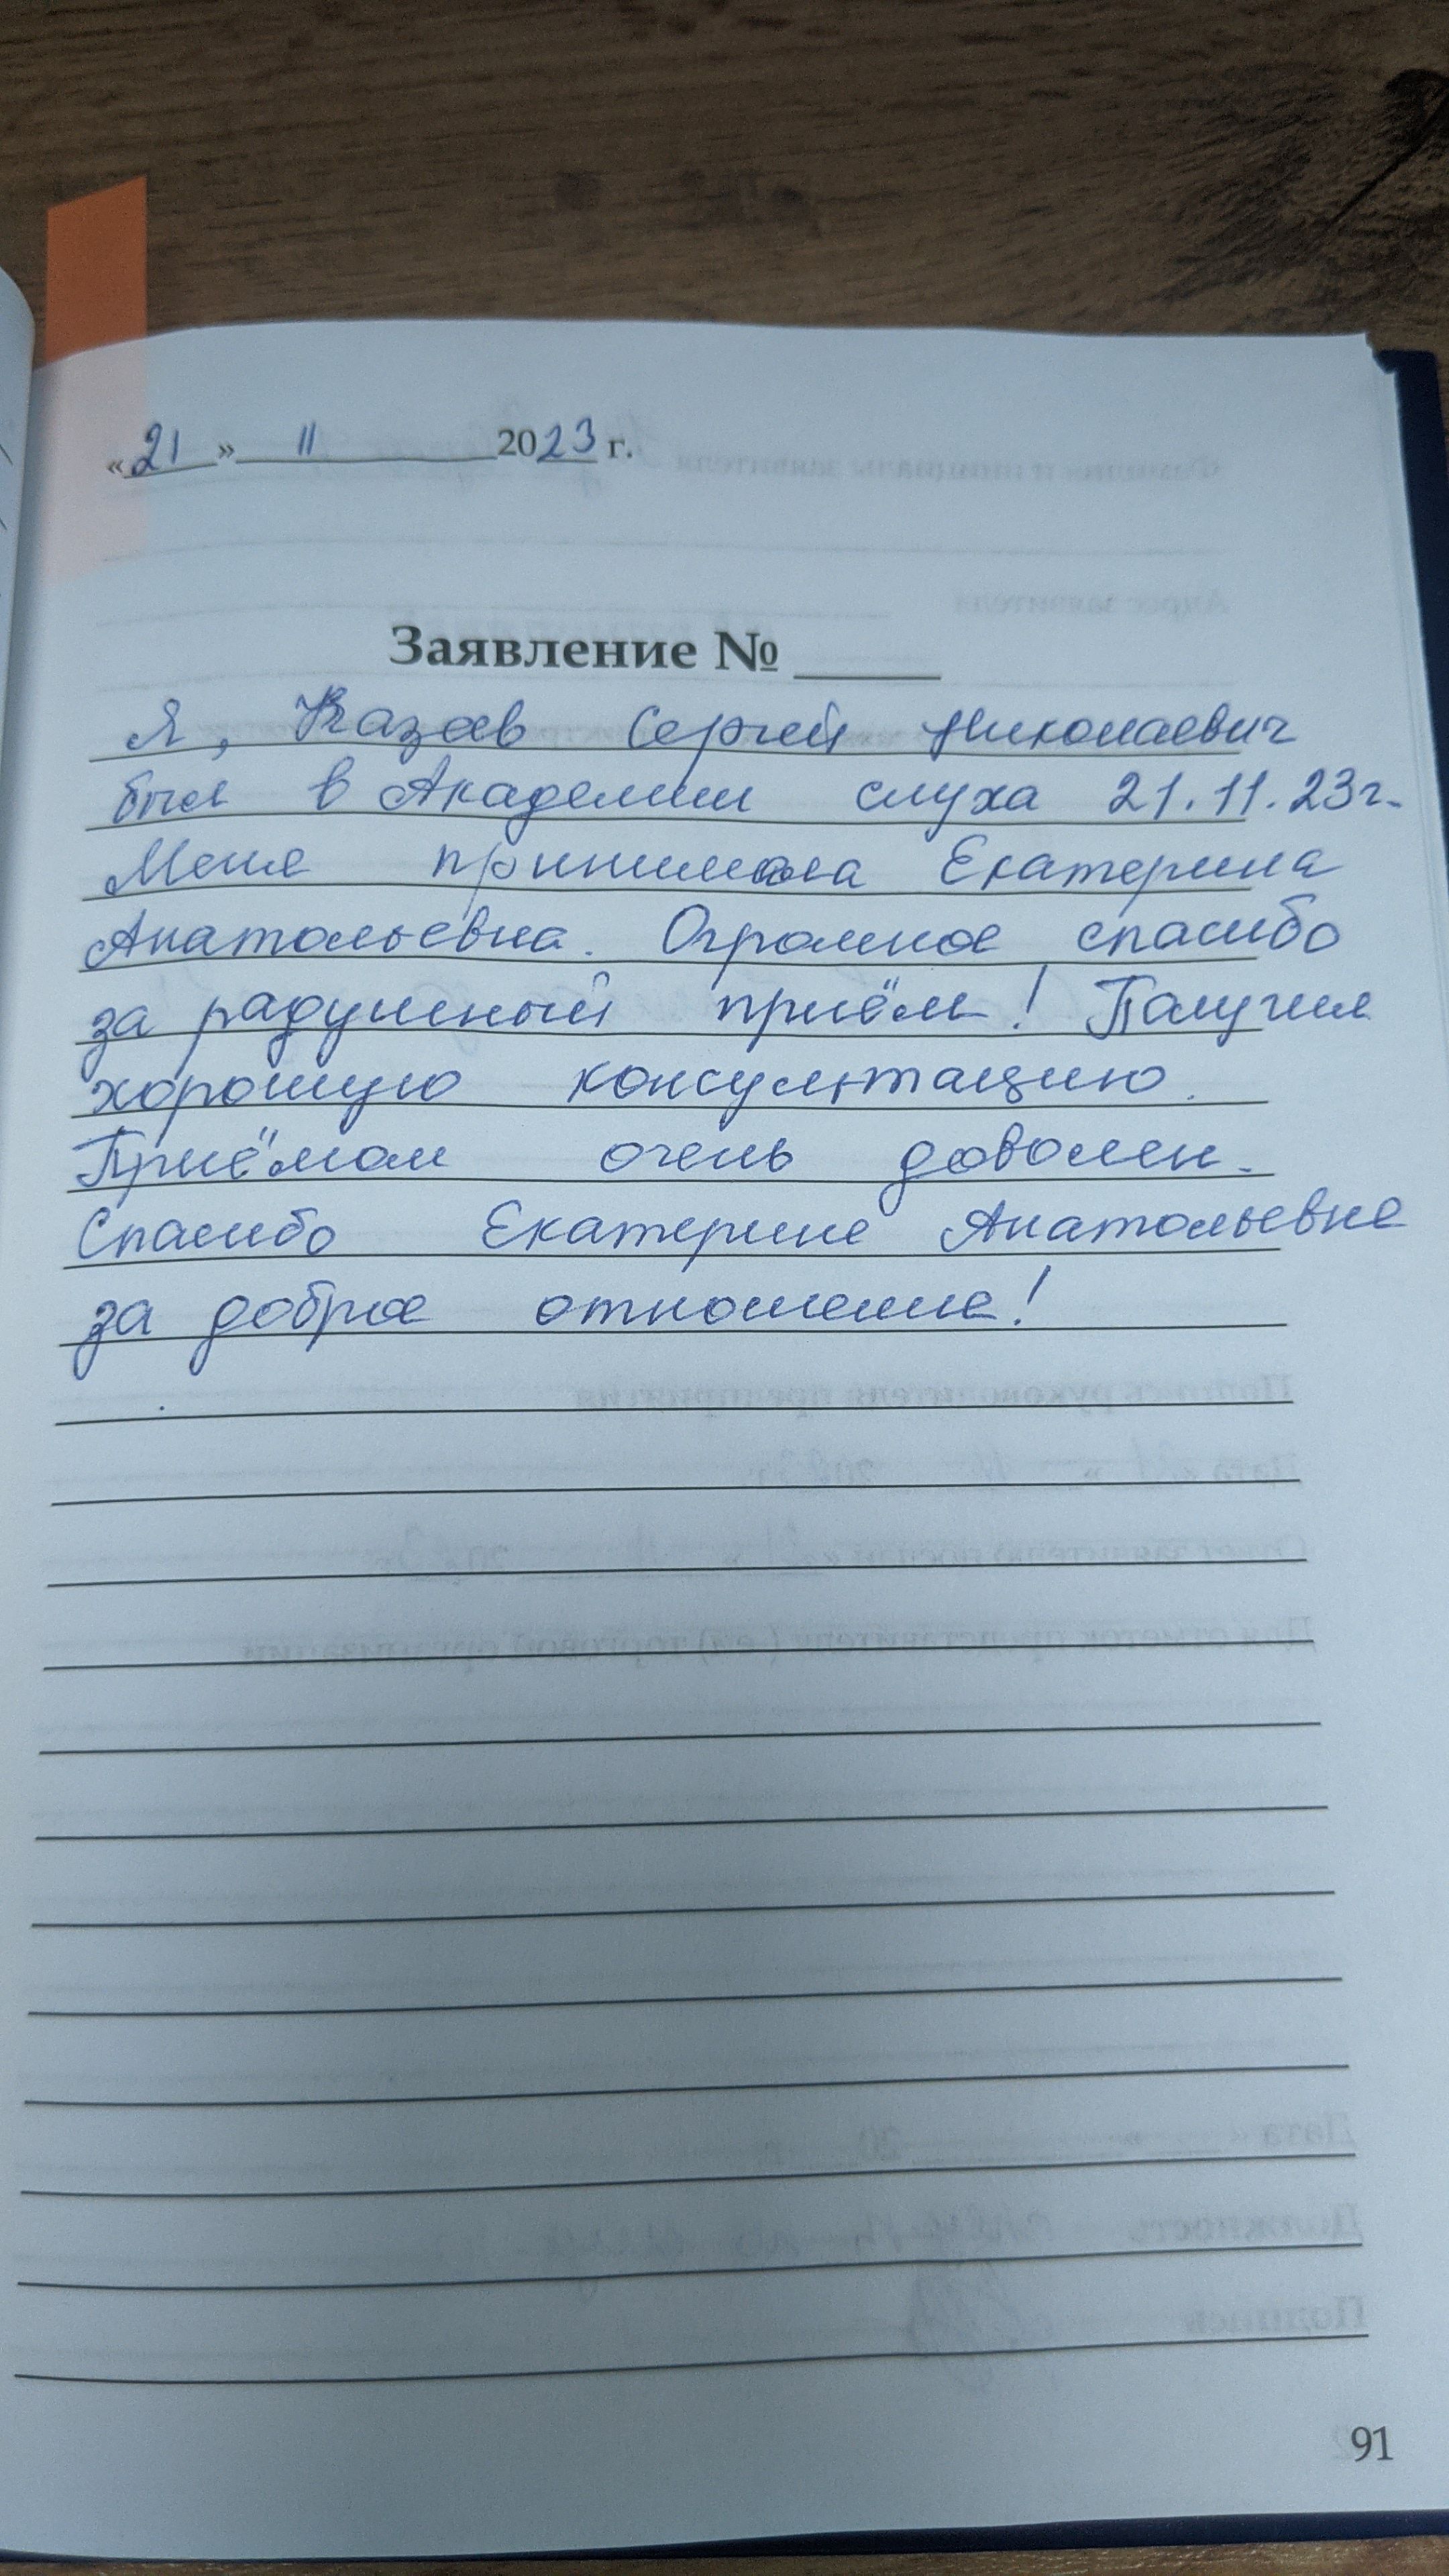 «21» 11 2023 г.
Заявление №
Я, Казаев Сергей Николаевич
был в Академии слуха 21.11.23г.
Меня принимала Екатерина
Анатольевна. Огромное спасибо
за радушный приём! Получил
хорошую консультацию.
Приёмом очень доволен.
Спасибо Екатерине Анатольевне
за доброе отношение!
91